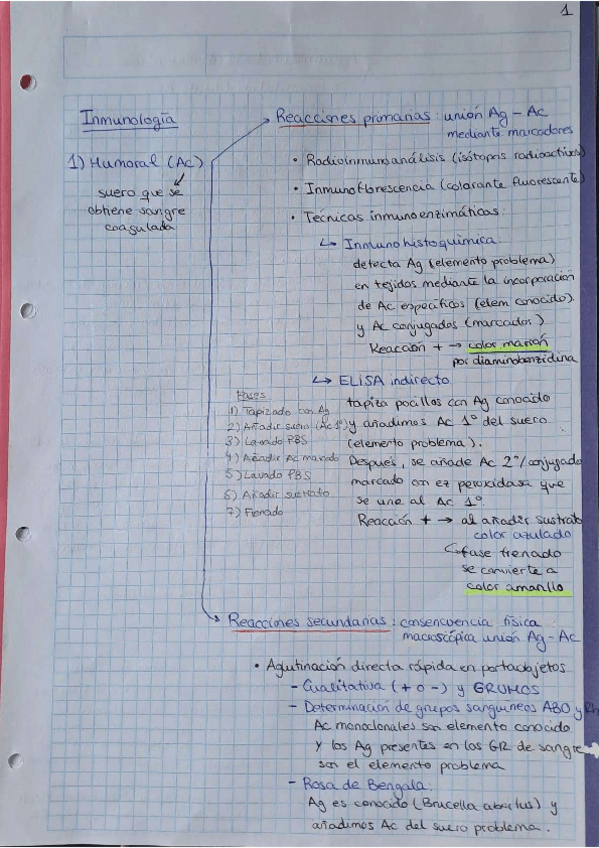 1
Inmunología
1) Humoral (Ac)
suero que se
obtiene sangre
coagulada
Reacciones primarias: unión Ag - Ac
mediante marcadores
• Radioinmunoanálisis (isótopos radioactivos)
• Inmunoflorescencia (colorante fluorescente)
• Técnicas inmunoenzimáticas:
↳ Inmunohistoquímica
detecta Ag (elemento problema)
en tejidos mediante la incorporación
de Ac específicos (elem conocido)
y Ac conjugados (marcados)
Reacción + → color marrón
por diaminobenzidina
↳ ELISA indirecto
tapiza pocillos con Ag conocido
y añadimos Ac 1º del suero
(elemento problema).
Después, se añade Ac 2º/conjugado
marcado con ez peroxidasa que
se une al Ac 1º.
Reacción + → al añadir sustrato
color azulado
fase frenado
se convierte a
color amarillo
Fases
1) Tapizado con Ag
2) Añadir suero (Ac 1º)
3) Lavado PBS
4) Añadir Ac marcado
5) Lavado PBS
6) Añadir sustrato
7) Frenado
Reacciones secundarias: consencuencia física
macroscópica unión Ag - Ac
• Aglutinación directa rápida en portaobjetos
- Cualitativa (+ o -) y GRUMOS
- Determinación de grupos sanguíneos ABO y Rh
Ac monoclonales son elemento conocido
y los Ag presentes en los GR de sangre
son el elemento problema
- Rosa de Bengala:
Ag es conocido (Brucella abortus) y
añadimos Ac del suero problema.